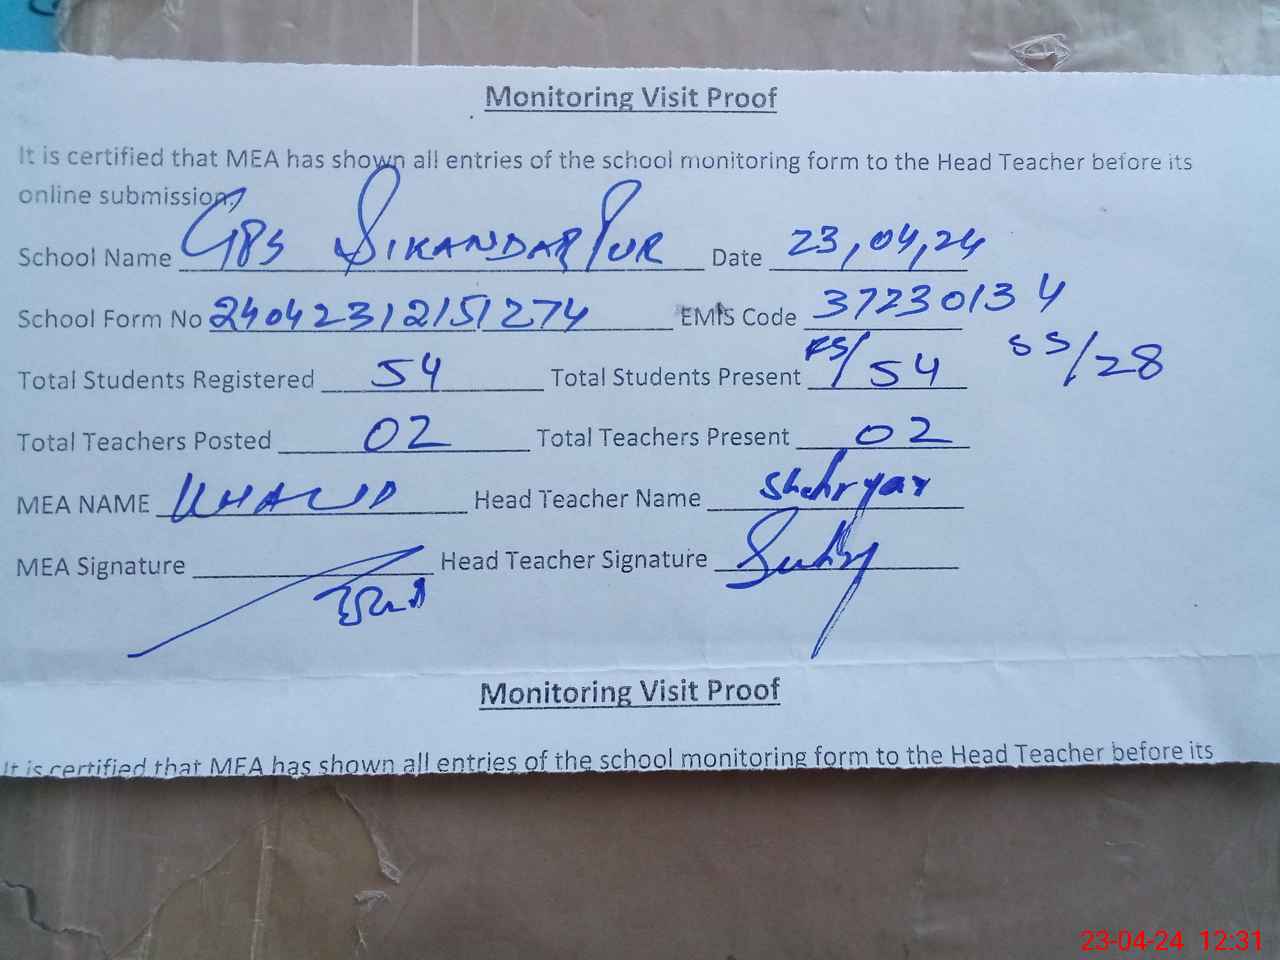 Monitoring Visit Proof
It is certified that MEA has shown all entries of the school monitoring form to the Head Teacher before its
online submission.
School Name GPS SIKANDARPUR Date 23,04,24
School Form No 24042312151274 EMIS Code 37230134
Total Students Registered 54 Total Students Present FS/54 SS/28
Total Teachers Posted 02 Total Teachers Present 02
MEA NAME KHALID Head Teacher Name Shehryar
MEA Signature Head Teacher Signature
Monitoring Visit Proof
It is certified that MEA has shown all entries of the school monitoring form to the Head Teacher before its
23-04-24 12:31